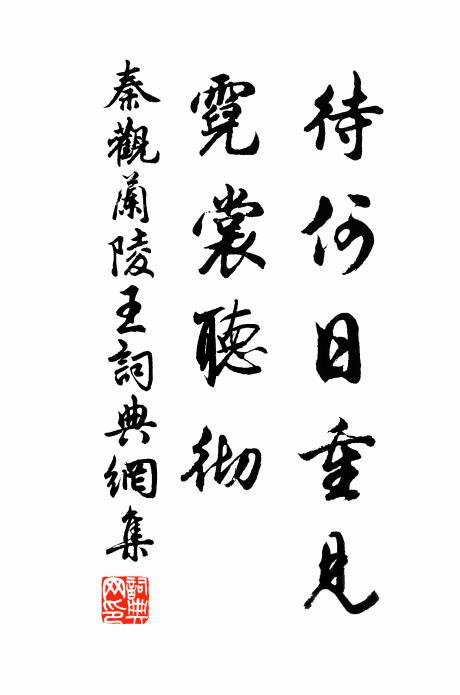 待何日重見
霓裳聽徹
秦觀蘭陵王詞典網集
詞典网印